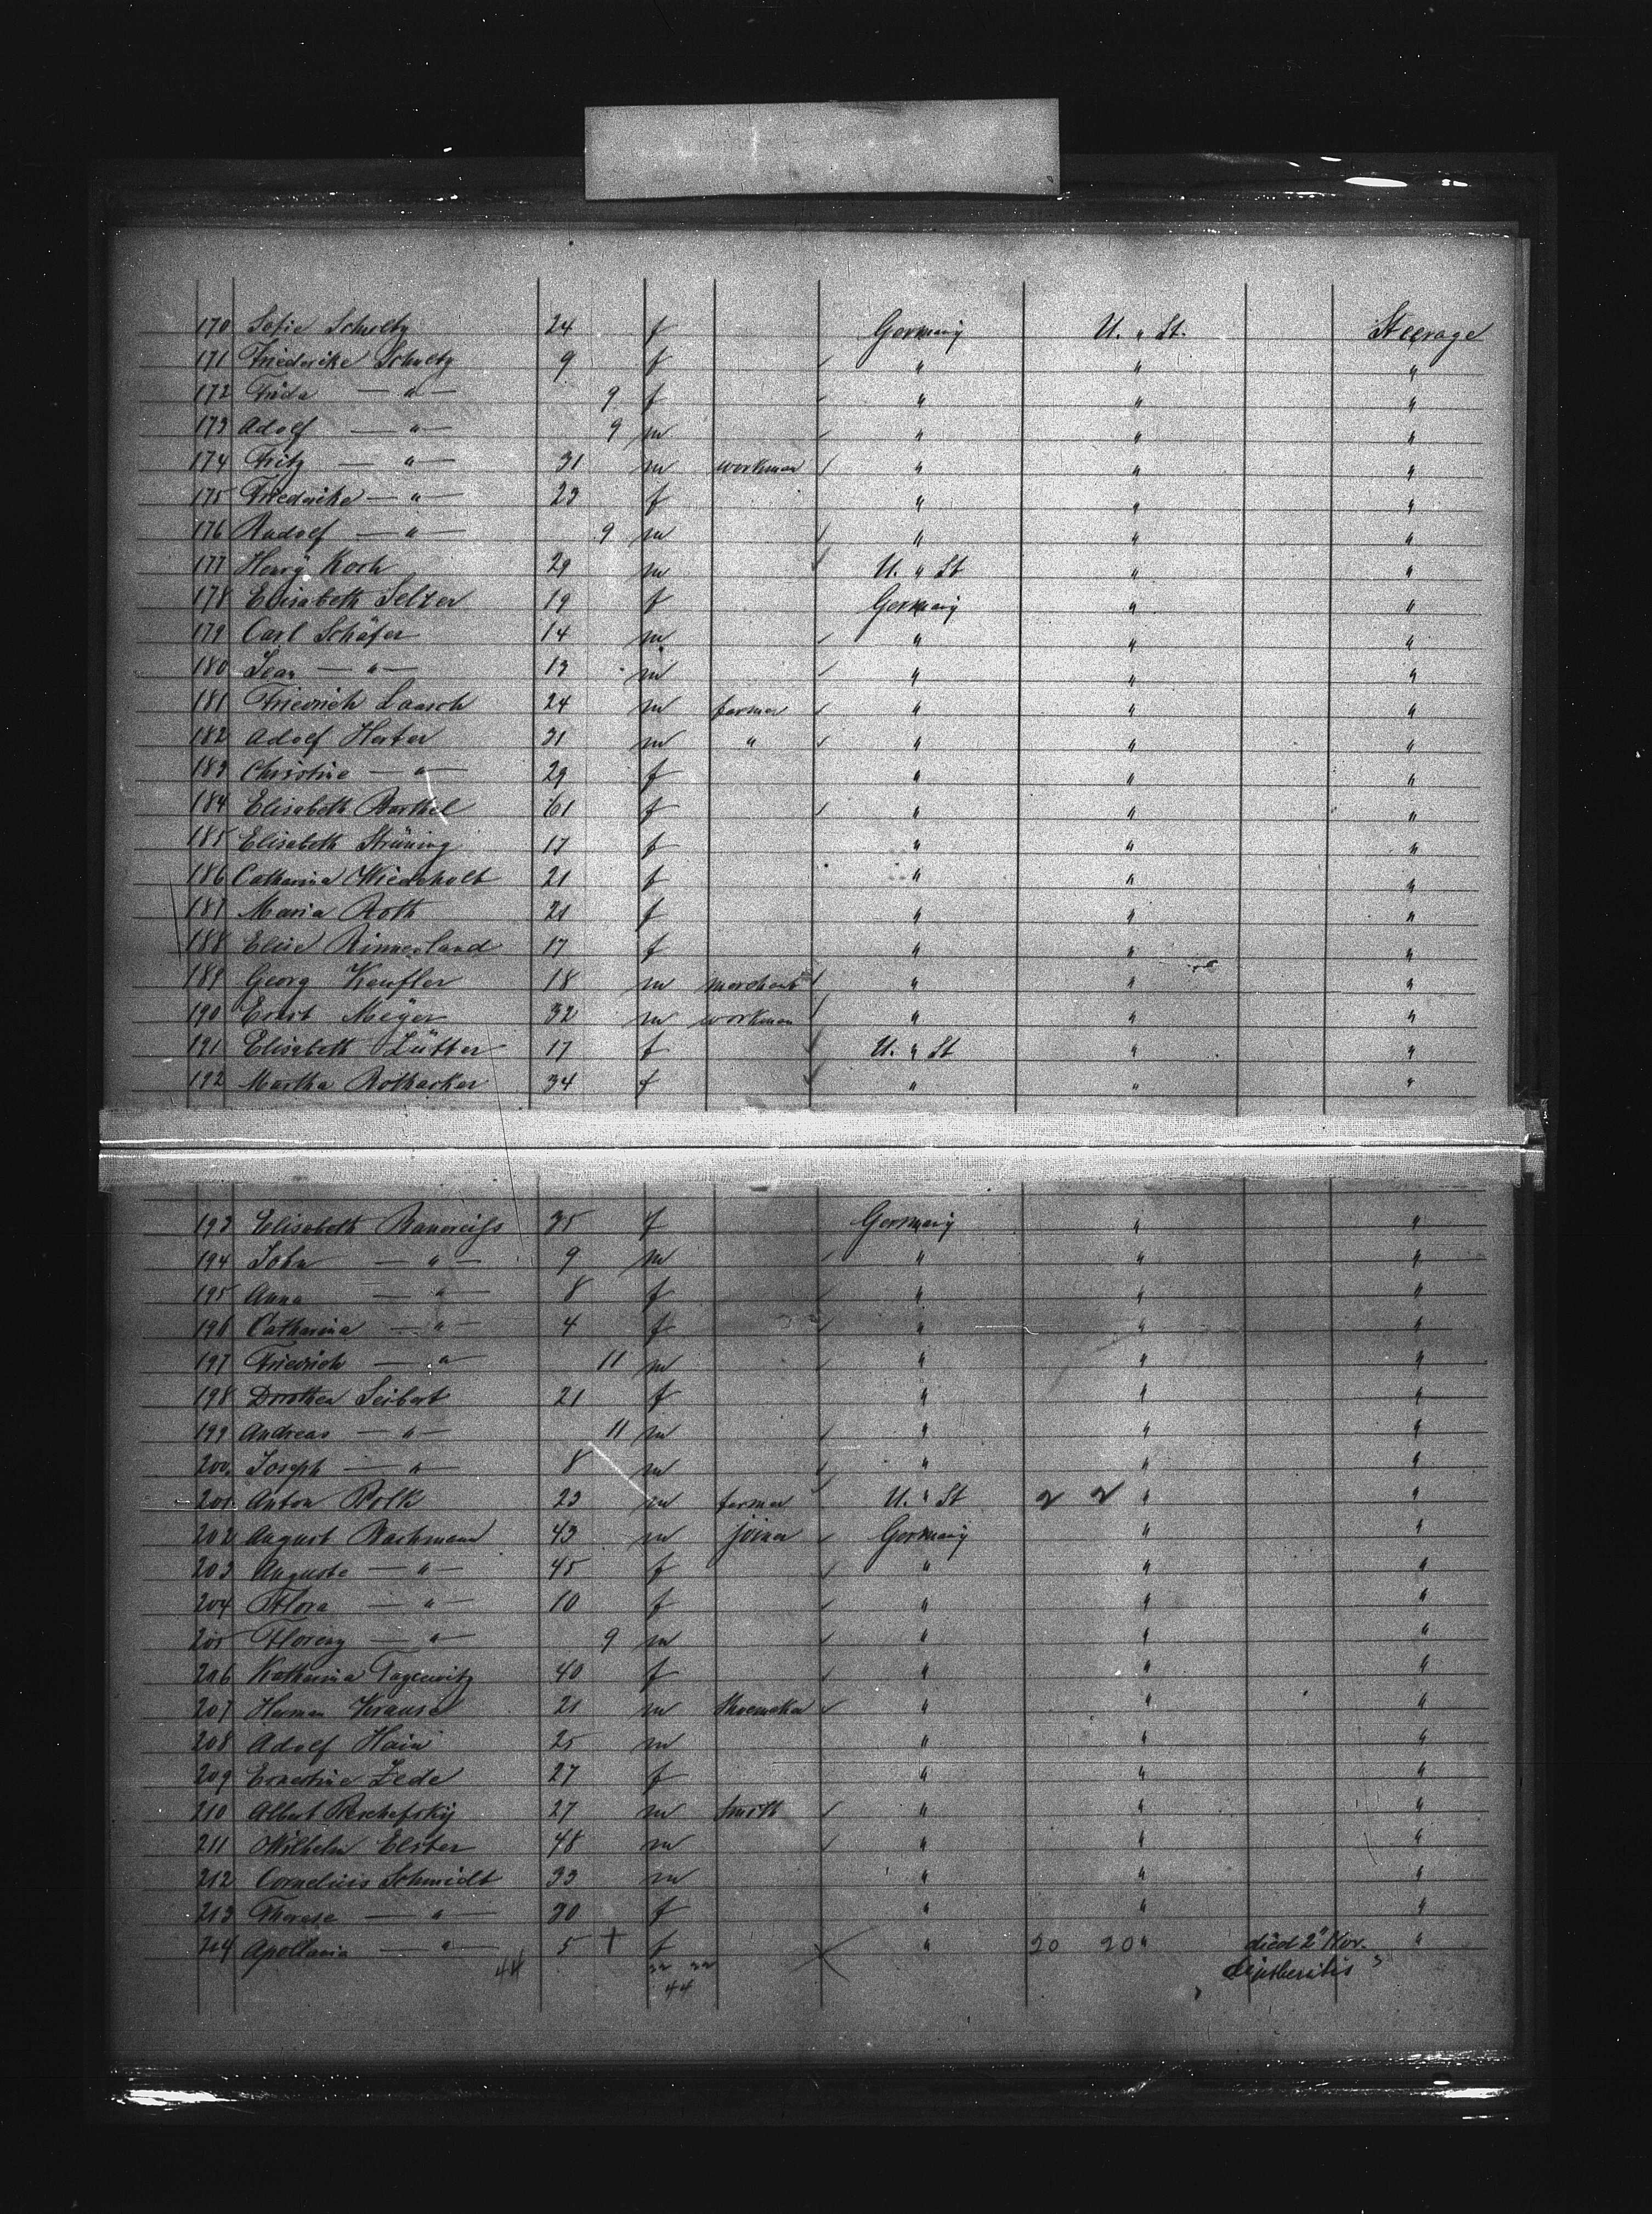 170 Sofie Schultz 24 f Germany U. " St. Steerage
171 Friederike Schultz 9 f " " "
172 Frida — " — 9 f " " "
173 Adolf — " — 9 m " " "
174 Fritz — " — 31 m workman " " "
175 Friederike — " — 23 f " " "
176 Rudolf — " — 9 m " " "
177 Henry Koch 29 m U. " St " "
178 Elisabeth Selzer 19 f Germany " "
179 Carl Schäfer 14 m " " "
180 Jean — " — 13 m " " "
181 Friedrich Laasch 24 m farmer " " "
182 Adolf Herter 31 m " " " "
183 Christine — " — 29 f " " "
184 Elisabeth Barthel 61 f " " "
185 Elisabeth Strüning 17 f " " "
186 Catharina Wiederholt 21 f " " "
187 Maria Roth 21 f " " "
188 Elise Rimmerland 17 f " " "
189 Georg Keufler 18 m merchant " " "
190 Ernst Meÿer 32 m workman " " "
191 Elisabeth Lütter 17 f U. " St " "
192 Martha Rothacker 34 f " " "
193 Elisabeth 35 f Germany " "
194 John — " — 9 m " " "
195 Anna — " — 8 f " " "
196 Catharina — " — 4 f " " "
197 Friedrich — " — 11 m " " "
198 Dorothea Seibert 21 f " " "
199 Andreas — " — 11 m " " "
200. Joseph — " — 8 m " " "
201 Anton Volk 23 m farmer U. " St 2 2 " "
202 August Bachmann 43 m joiner Germany " "
203 Auguste — " — 45 f " " "
204 Flora — " — 10 f " " "
205 Florenz — " — 9 m " " "
206 Katharina 40 f " " "
207 Herman Krause 21 m Shoemaker " " "
208 Adolf Hain 25 m " " "
209 Ernestine Zede 27 f " " "
210 Albert 27 m Smith " " "
211 Wilhelm Elster 48 m " " "
212 Cornelius Schmidt 33 m " " "
213 Therese — " — 30 f " " "
214 Apollonia — " — 5 + f " 20 20 " died 2" Nov. "
44 22 22 diphtheritis
44